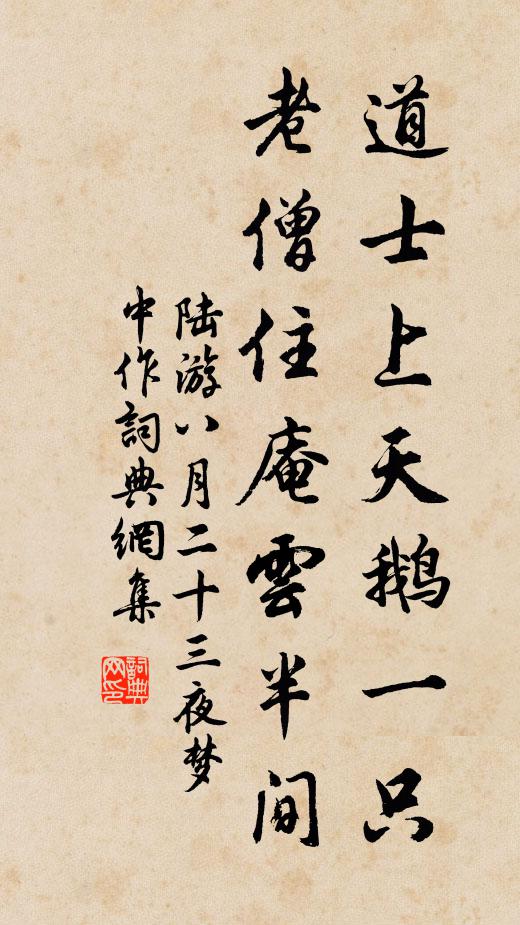 道士上天鹅一只
老僧住庵雲半间
陆游八月二十三夜梦
中作詞典網集
詞典
网印